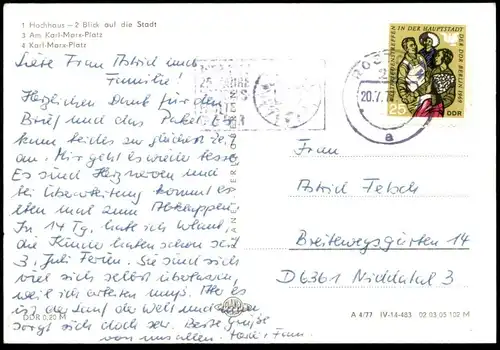 1 Hochhaus — 2 Blick auf die Stadt
3 Am Karl-Marx-Platz
4 Karl-Marx-Platz
Liebe Frau Astrid und
Familie!
Herzlichen Dank für den
Brief und das Paket. Es
kam beides zur gleichen Zeit
an. Mir geht es wieder besser
Es sind Herznerven und
bei Überarbeitung kommt es
eben mal zum Abklappen.
In 14 Tg. habe ich Urlaub,
die Kinder haben schon seit
3. Juli Ferien. Sie sind sich
viel sich selbst überlassen,
weil ich arbeiten muß. Aber es
ist der Lauf der Welt und
sorgt sich doch sehr. Beste Grüße
von uns allen.
DDR 0,20 M
PLANET VERLAG BERLIN
A 4/77 IV-14-483 02 03 05 102 M
25 JAHRE
20.7.7
a
TREFFEN IN DER HAUPTSTADT DER DDR BERLIN 1969
25
DDR
Frau
Astrid Felsch
Breitewegsgärten 14
D6361 Niddatal 3